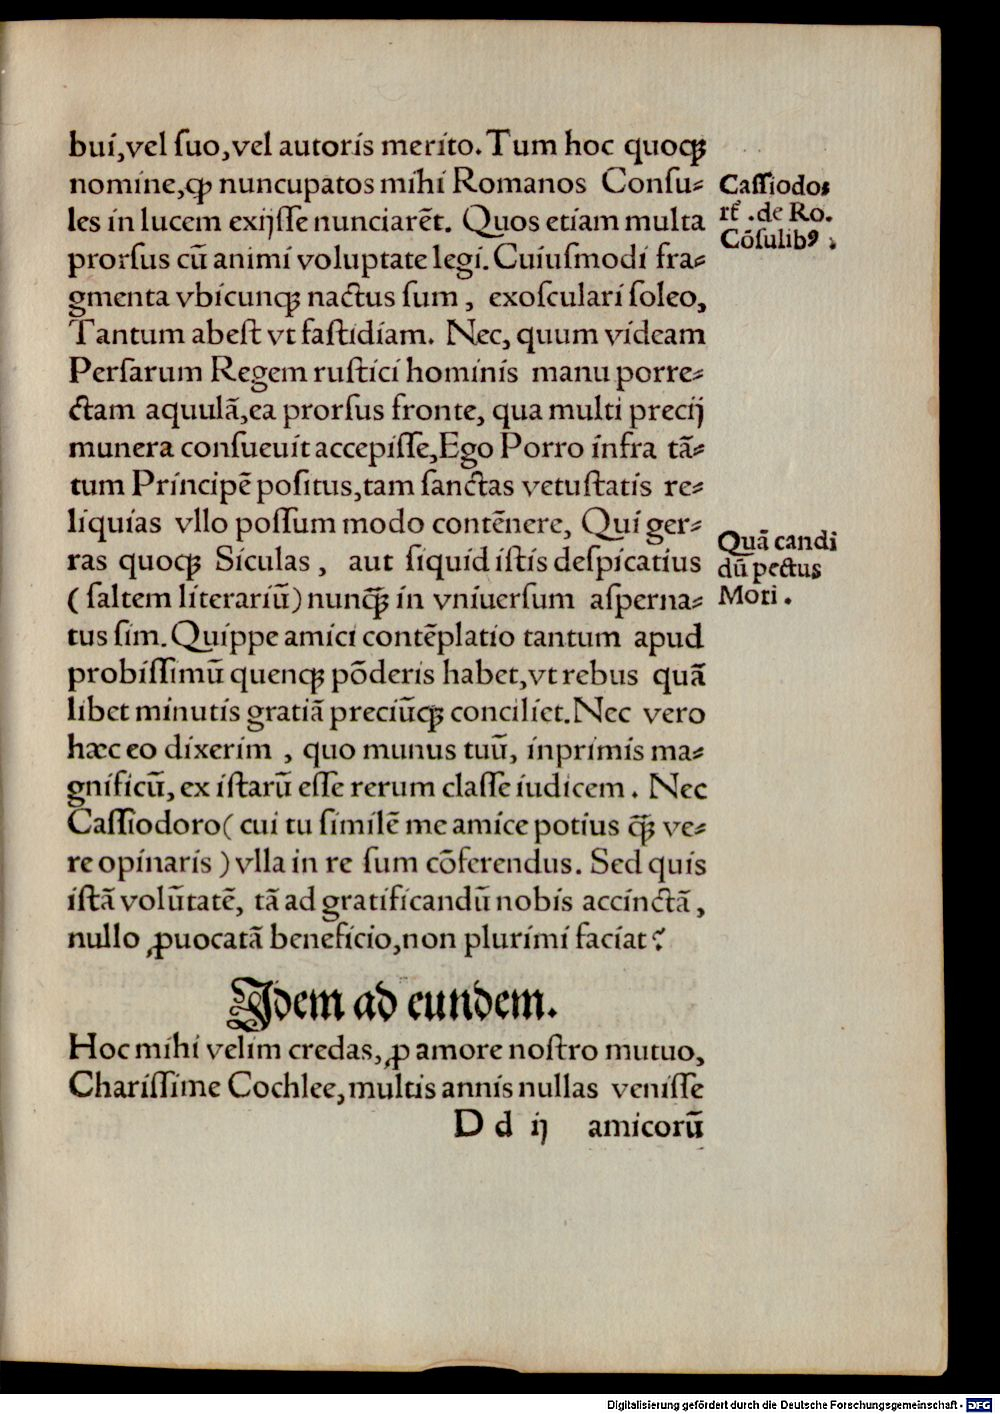 bui,vel ſuo,vel autoris merito.Tum hoc quoqꝫ
nomine,ꝙ nuncupatos mihi Romanos Conſu⸗
les in lucem exijſſe nunciarẽt. Quos etiam multa
prorſus cũ animi voluptate legi.Cuiuſmodi fra⸗
gmenta vbicunqꝫ nactus ſum, exoſculari ſoleo,
Tantum abeſt vt faſtidiam. Nec, quum videam
Perſarum Regem ruſtici hominis manu porre⸗
ctam aquulã,ea prorſus fronte, qua multi precij
munera conſueuit accepiſſe,Ego Porro infra tã⸗
tum Principẽ poſitus,tam ſanctas vetuſtatis re⸗
liquias vllo poſſum modo contẽnere, Qui ger⸗
ras quoqꝫ Siculas, aut ſiquid iſtis deſpicatius
(ſaltem literariũ) nunq̃ꝫ in vniuerſum aſperna⸗
tus ſim.Quippe amici contẽplatio tantum apud
probiſſimũ quenqꝫ põderis habet,vt rebus quã
libet minutis gratiã preciũqꝫ conciliet.Nec vero
hæc eo dixerim, quo munus tuũ, inprimis ma⸗
gnificũ, ex iſtarũ eſſe rerum claſſe iudicem. Nec
Caſſiodoro( cui tu ſimilẽ me amice potius q̃ꝫ ve⸗
re opinaris) vlla in re ſum cõferendus. Sed quis
iſtã volũtatẽ, tã ad gratificandũ nobis accinctã,
nullo ꝓuocatã beneficio,non plurimi faciat?
Caſſiodo⸗
rꝰ .de Ro.
Cõſulibꝰ.
Quã candi
dũ pectus
Mori.
Idem ad eundem.
Hoc mihi velim credas, ꝓ amore noſtro mutuo,
Chariſſime Cochlee,multis annis nullas veniſſe
D d ij amicorũ
Digitalisierung gefördert durch die Deutsche Forschungsgemeinschaft - DFG